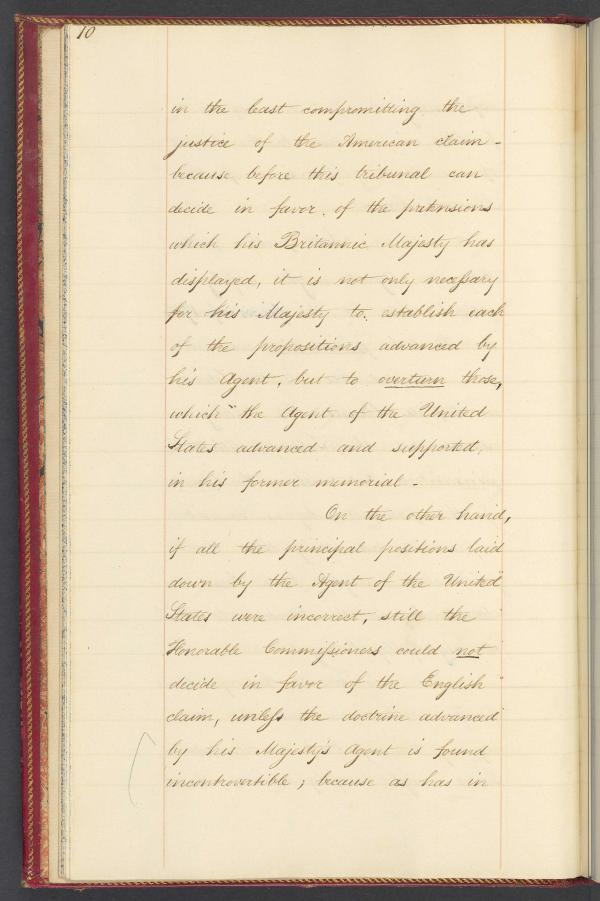 10
in the least compromitting the
justice of the American claim -
because before this tribunal can
decide in favor of the pretensions
which his Britannic Majesty has
displayed, it is not only necessary
for his Majesty to establish each
of the propositions advanced by
his Agent, but to overturn those,
which the Agent of the United
States advanced and supported,
in his former memorial -
On the other hand,
if all the principal positions laid
down by the Agent of the United
States were incorrect, still the
Honorable Commissioners could not
decide in favor of the English
claim, unless the doctrine advanced
by his Majesty's Agent is found
incontrovertible; because as has in